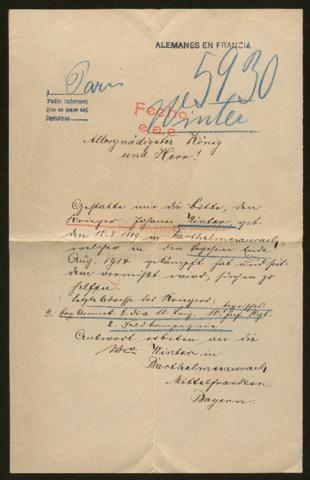 ALEMANES EN FRANCIA
Paris
5930
Pedir informes
Devolver
Fecho
Winter
Allergnädigster König
und Herr!
Gestatte mir die bitte, den
Krieger Johann Winter geb.
den in Barthelmesaurach,
welcher in den Vogesen Ende
Aug. 1914 gekämpft hat und seit
dem vermißt wird, suchen zu
helfen.
letzte Adresse des Kriegers: bayrisches
2. Feldkompagnie
Antwort erbeten an die
Winter in
Barthelmesaurach
Mittelfranken
Bayern.